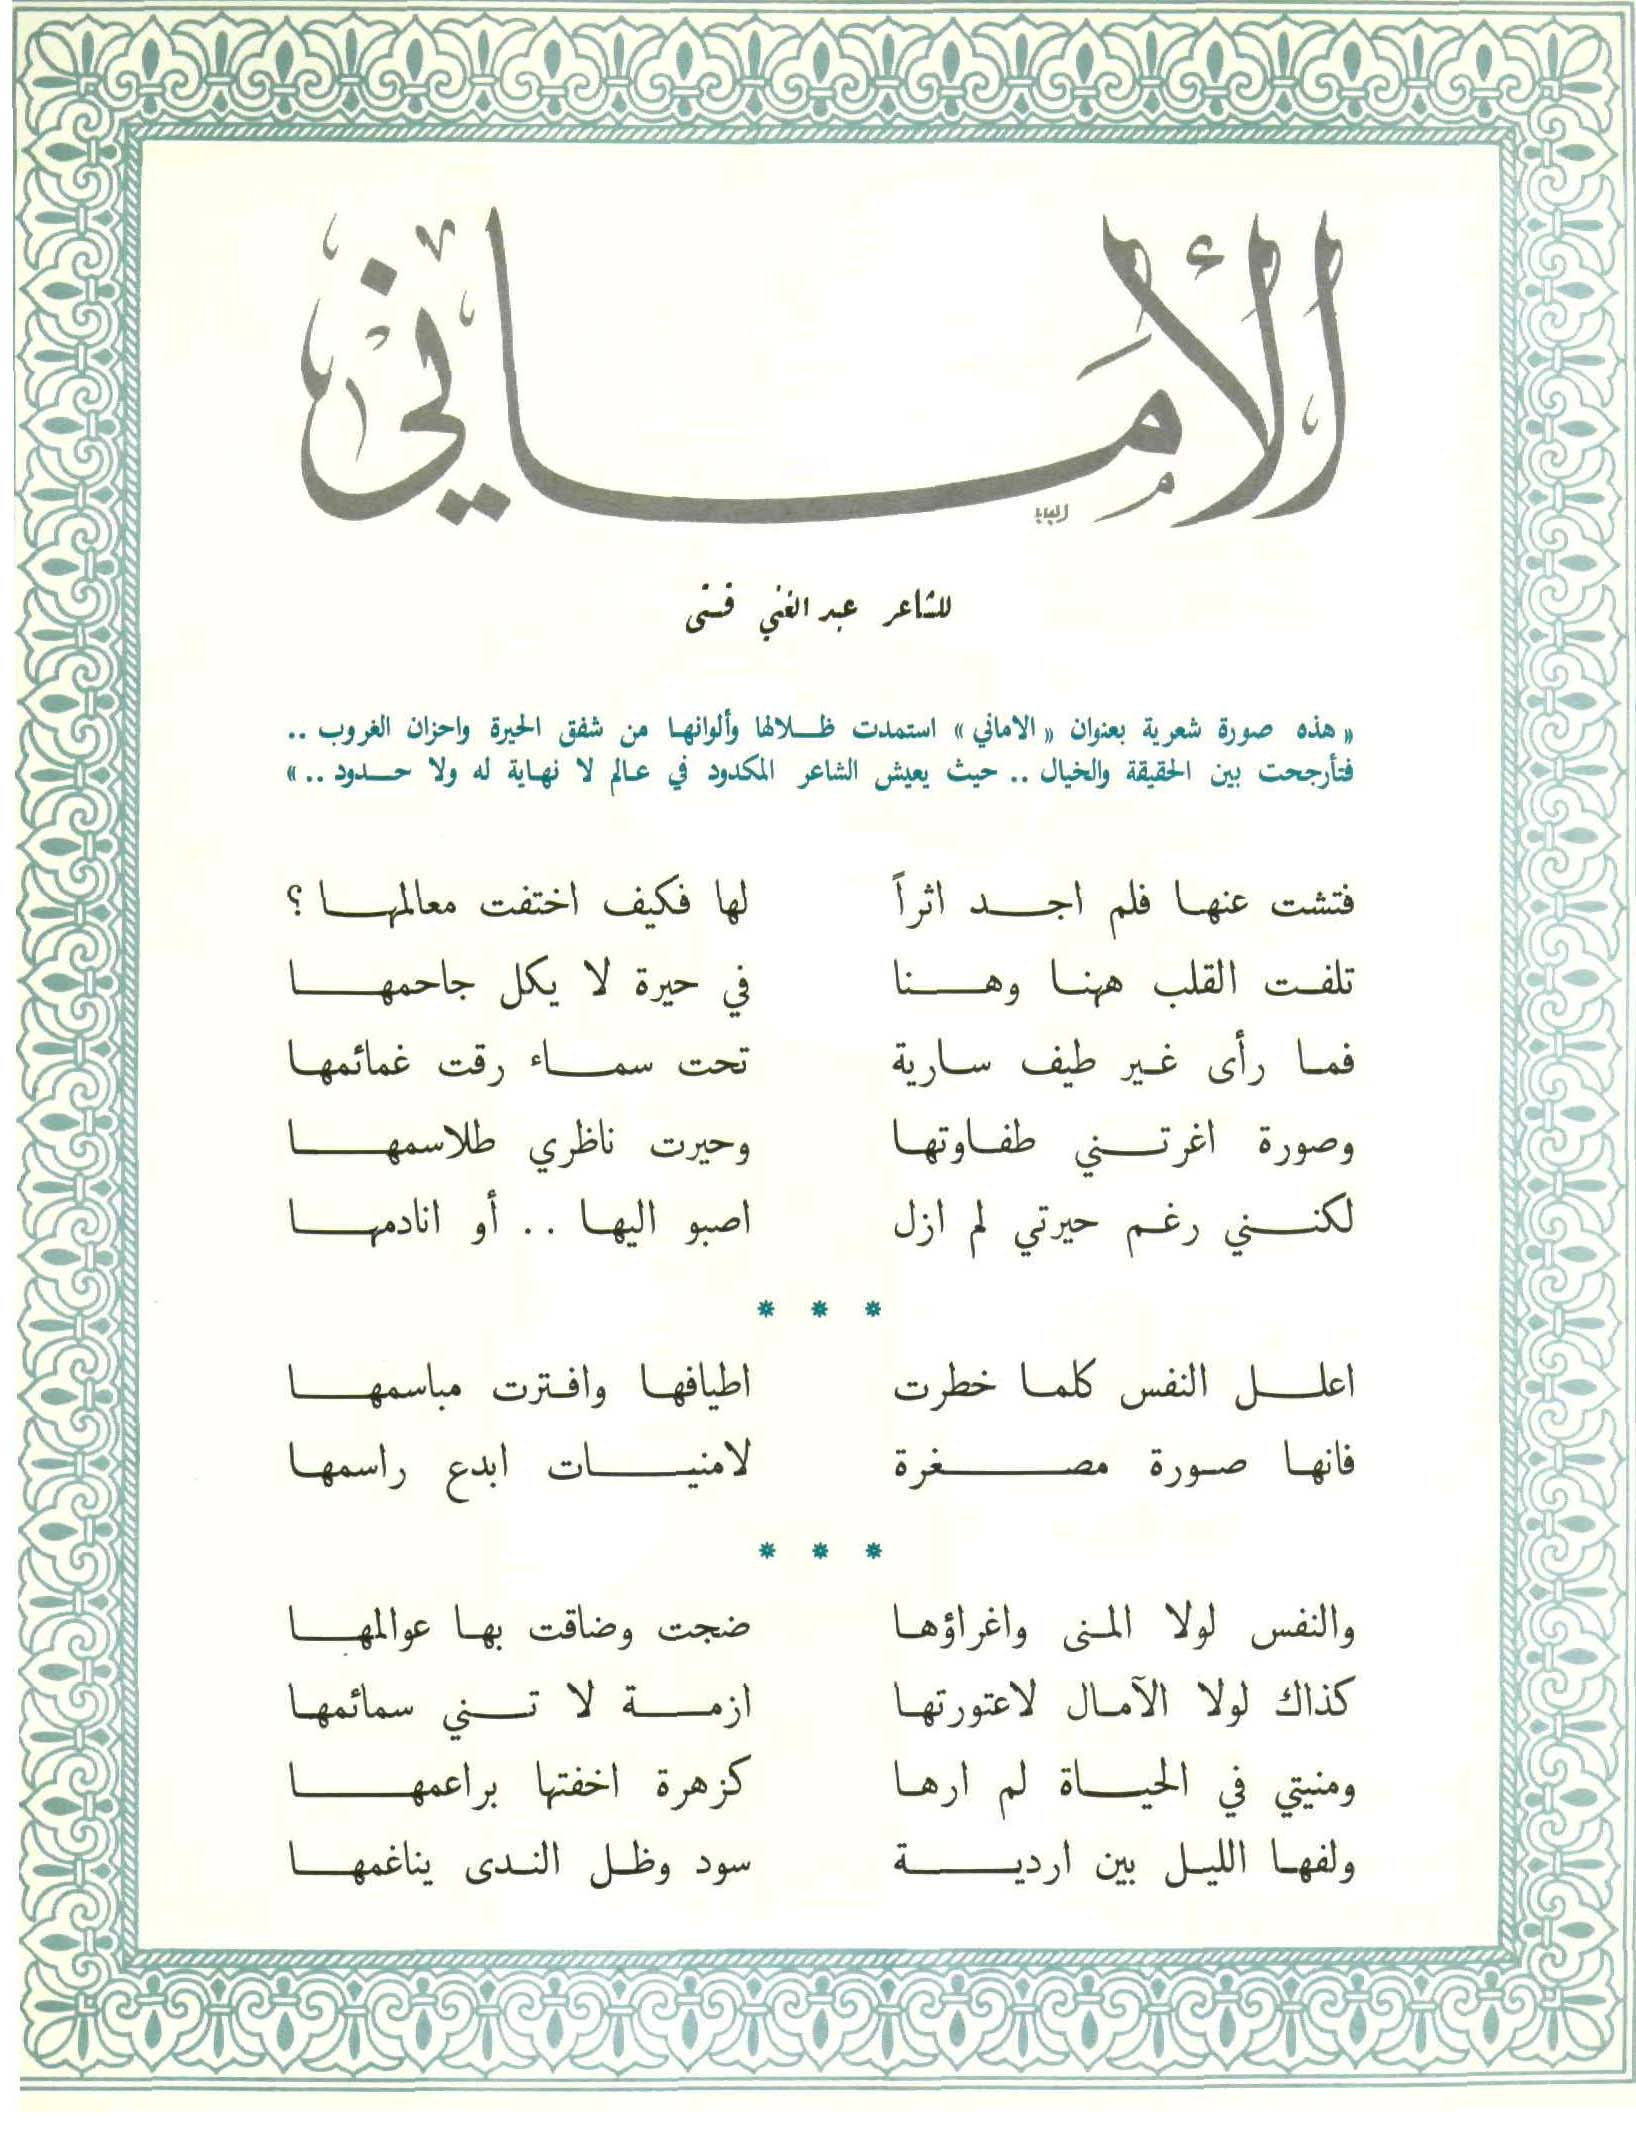 الأماني
للشاعر عبد الغني قستي
« هذه صورة شعرية بعنوان « الاماني » استمدت ظلالها وألوانها من شفق الحيرة واحزان الغروب ..
فتأرجحت بين الحقيقة والخيال .. حيث يعيش الشاعر المكدود في عالم لا نهاية له ولا حدود .. »
فتشت عنها فلم اجد اثراً لها فكيف اختفت معالمها ؟
تلفت القلب ههنا وهنا في حيرة لا يكل جاحمها
فما رأى غير طيف سارية تحت سماء رقت غمائمها
وصورة اغرتني طفاوتها وحيرت ناظري طلاسمها
لكنني رغم حيرتي لم ازل اصبو اليها .. أو انادمها
* * *
اعلل النفس كلما خطرت اطيافها وافترت مباسمها
فانها صورة مصغرة لامنيات ابدع راسمها
* * *
والنفس لولا المنى واغراؤها ضجت وضاقت بها عوالمها
كذاك لولا الآمال لاعتورتها ازمة لا تني سمائمها
ومنيتي في الحياة لم ارها كزهرة اخفتها براعمها
ولفها الليل بين اردية سود وظل الندى يناغمها